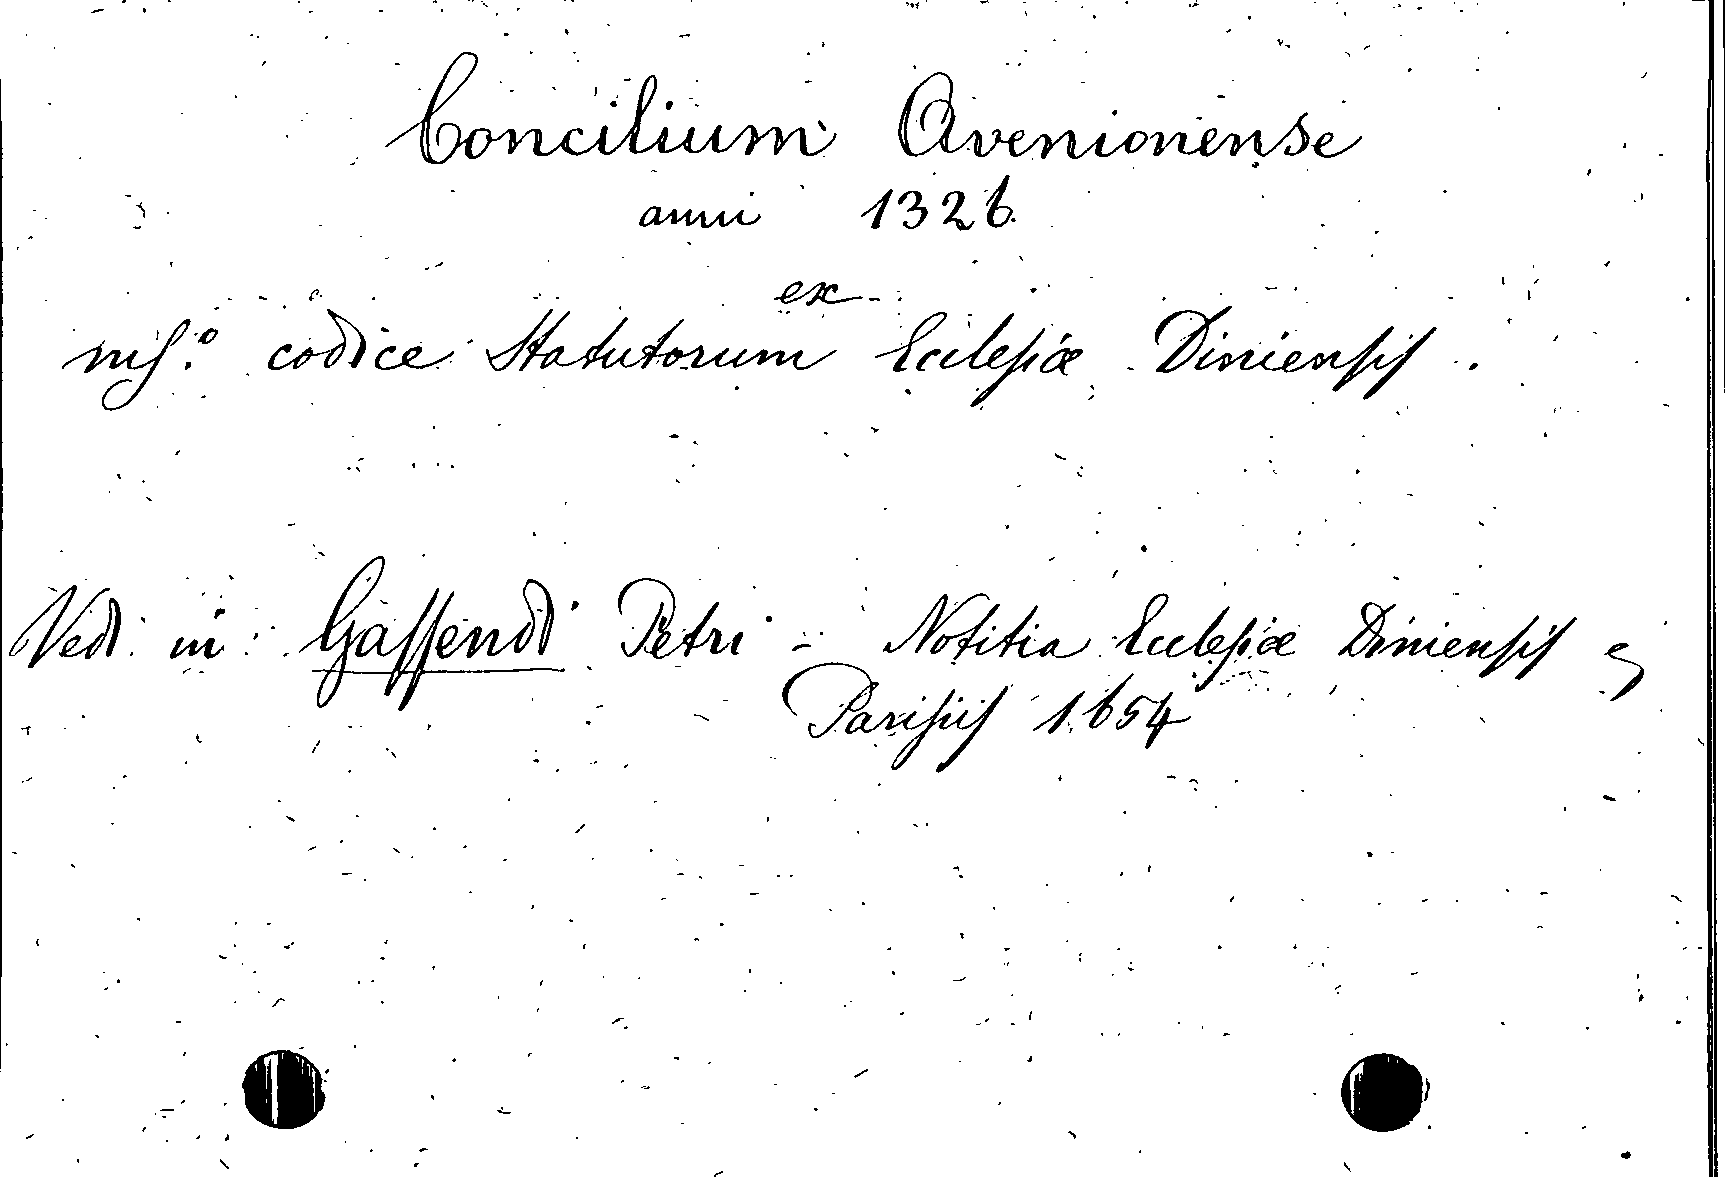 Concilium Avenionense
anni 1326
ex
ms.º codice Statutorum Ecclesiæ Diniensis.
Vedi in Gassendi Petri - Notitia Ecclesiæ Diniensis
Parisiis 1654